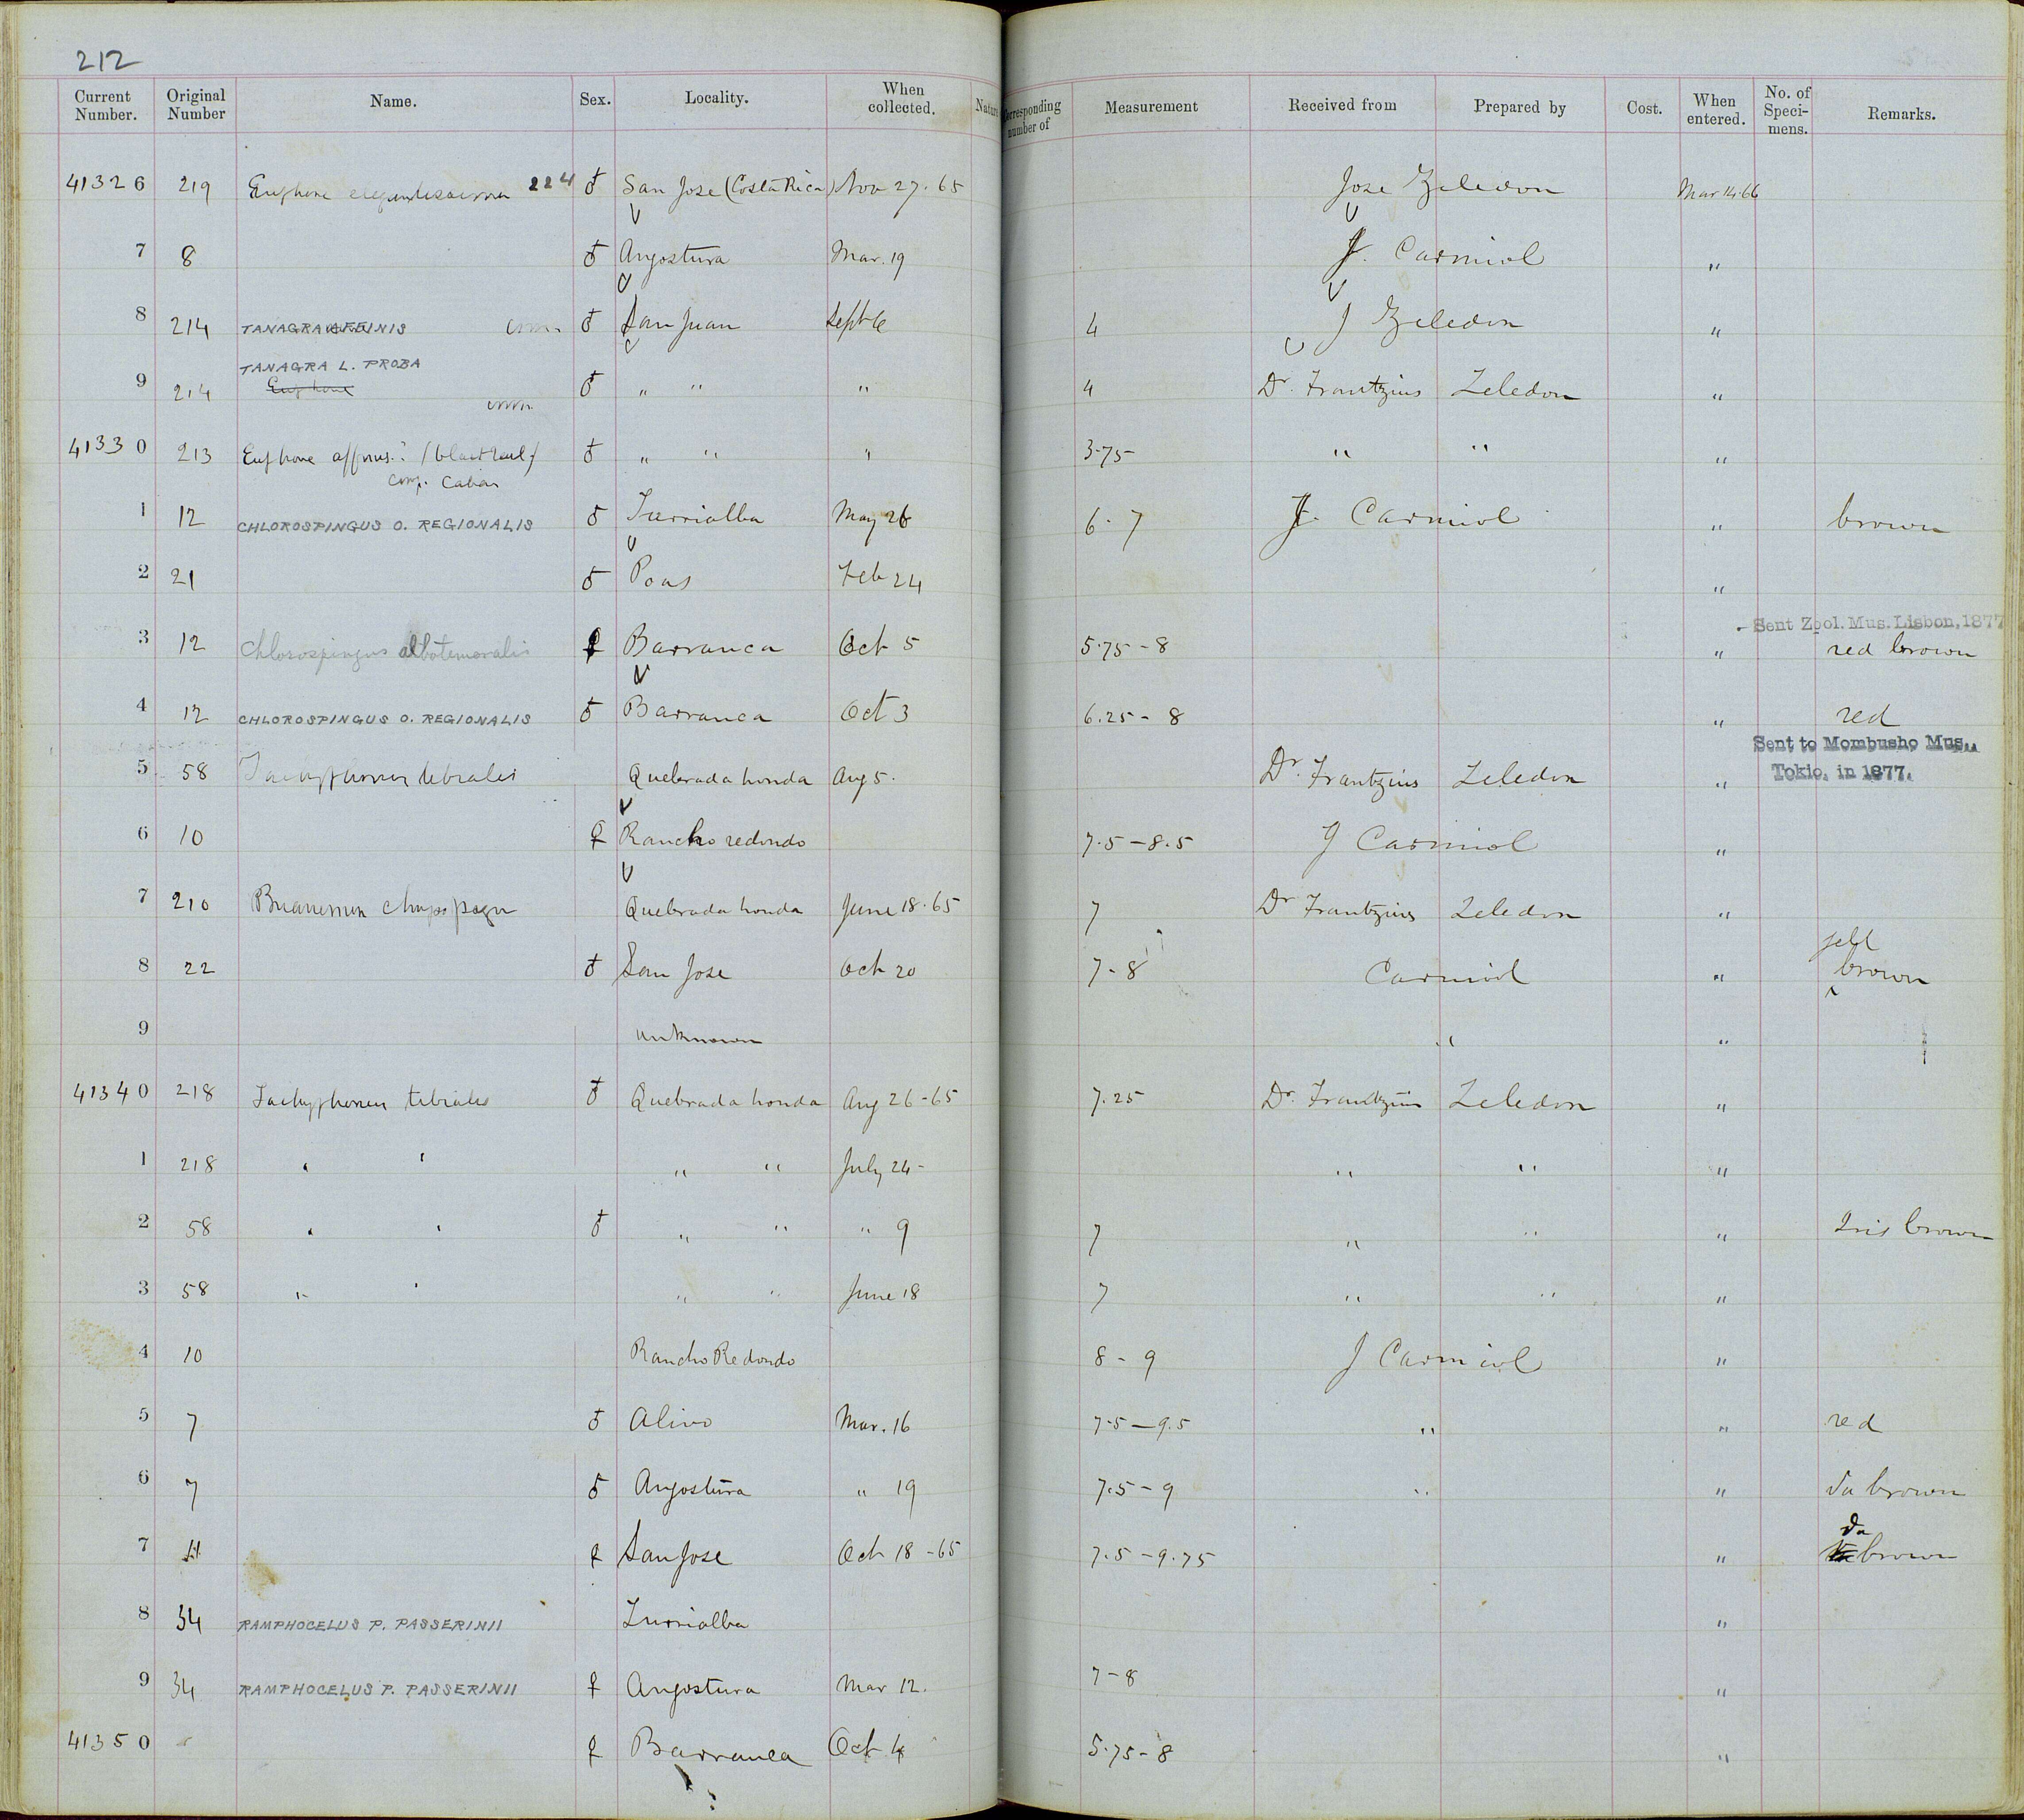 212
Current Number. Original Number Name. Sex. Locality. When collected. Nature Corresponding number of Measurement Received from Prepared by Cost. When entered. No. of Speci- mens. Remarks.
41326 219 Euphone elegantissima 224 ♂ San Jose (Costa Rica) Nov 27. 65 Jose Zeledon Mar 14. 66
7 8 ♂ Angostura Mar. 19 J. Carmiol "
8 214 TANAGRA AFFINIS ♂ San Juan Sept 6 4 J Zeledon "
TANAGRA L. PROBA
9 214 Euphone ♂ " " " 4 Dr. Frantzius Zeledon "
41330 213 Euphone affinis? ♂ " " " 3.75 " " "
1 12 CHLOROSPINGUS O. REGIONALIS ♂ Turrialba May 26 6. 7 J. Carmiol " brown
2 21 ♂ Poas Feb 24 "
Sent Zool. Mus. Lisbon, 1877
3 12 Chlorospingus albotemoralis ♀ Barranca Oct 5 5.75 - 8 " red brown
4 12 CHLOROSPINGUS O. REGIONALIS ♂ Barranca Oct 3 6.25 - 8 " red
Sent to Mombusho Mus.,
Tokio, in 1877.
5 58 Tachyphonus tibialis Quebrada honda Aug 5. Dr. Frantzius Zeledon "
6 10 ♀ Rancho redondo 7.5 - 8.5 J Carmiol "
7 210 Quebrada honda June 18. 65 7 Dr Frantzius Zeledon "
8 22 ♂ San Jose Oct 20 7 - 8 Carmiol " brown
9 unknown " "
41340 218 Tachyphonus tibialis ♂ Quebrada honda Aug 26 - 65 7.25 Dr. Frantzius Zeledon "
1 218 " " " " July 24 - " " "
2 58 " " ♂ " " " 9 7 " " " Iris brown
3 58 " " " " June 18 7 " " "
4 10 Rancho Redondo 8 - 9 J Carmiol "
5 7 ♂ Alivo Mar. 16 7.5 - 9.5 " " red
6 7 ♂ Angostura " 19 7.5 - 9 " " da brown
7 11 ♀ San Jose Oct 18 - 65 7.5 - 9.75 " da brown
8 34 RAMPHOCELUS P. PASSERINII Turrialba "
9 34 RAMPHOCELUS P. PASSERINII ♀ Angostura Mar 12. 7 - 8 "
41350 ♀ Barranca Oct 4 5.75 - 8 "